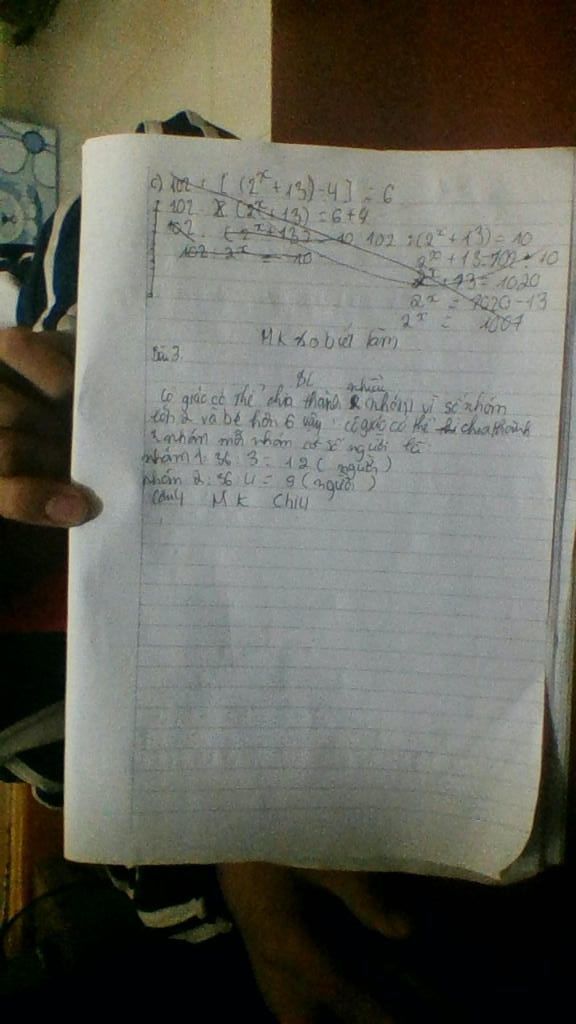 c) 102 : [ (2^x + 13) - 4 ] = 6
102 : (2^x + 13) = 6 + 4
102 : (2^x + 13) = 10 102 : (2^x + 13) = 10
102 : 2^x = 10 2^x + 13 = 102 . 10
2^x + 13 = 1020
2^x = 1020 - 13
2^x = 1007
MK ko biết làm
Bài 3
BL
cô giáo có thể chia thành 2 nhóm vì số nhóm
nhiều
lớn 2 và bé hơn 6 vậy cô giáo có thể chia thành
nhóm mỗi nhóm có số người là
nhóm 1: 36 : 3 = 12 ( người )
nhóm 2: 36 : 4 = 9 ( người )
câu 4 MK Chịu